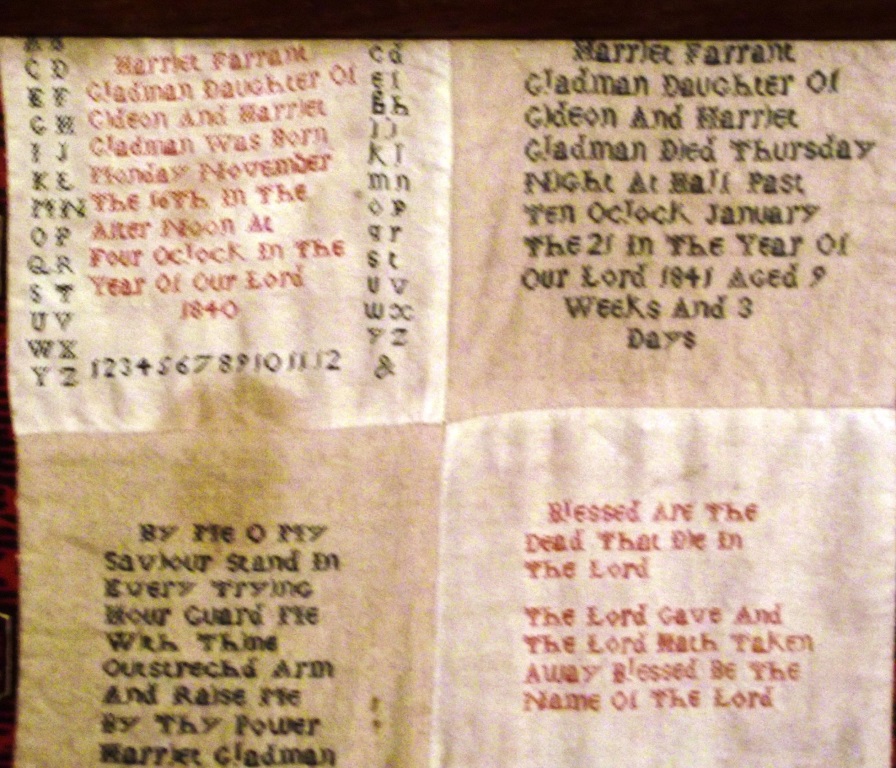 C D
E F
G H
I J
K L
M N
O P
Q R
S T
U V
W X
Y Z
Harriet Farrant
Gladman Daughter Of
Gideon And Harriet
Gladman Was Born
Monday November
The 16Th In The
After Noon At
Four Oclock In The
Year Of Our Lord
1840
1 2 3 4 5 6 7 8 9 10 11 12
c d
e f
g h
i j
k l
m n
o p
q r
s t
u v
w x
y z
&
Harriet Farrant
Gladman Daughter Of
Gideon And Harriet
Gladman Died Thursday
Night At Half Past
Ten Oclock January
The 21 In The Year Of
Our Lord 1841 Aged 9
Weeks And 3
Days
By Me O My
Saviour Stand In
Every Trying
Hour Guard Me
With Thine
Outstrechd Arm
And Raise Me
By Thy Power
Harriet Gladman
Blessed Are The
Dead That Die In
The Lord
The Lord Gave And
The Lord Hath Taken
Away Blessed Be The
Name Of The Lord